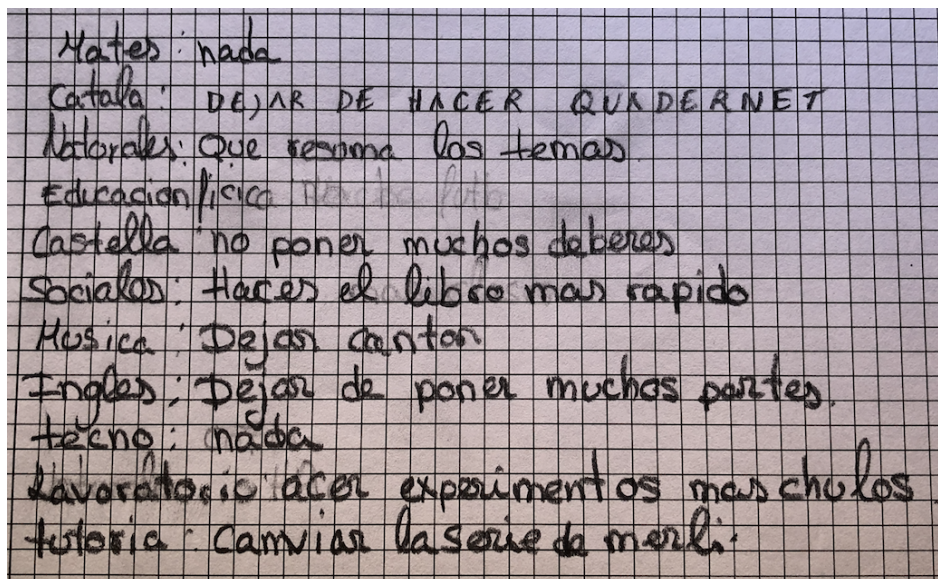 Mates: nada
Catala: DEJAR DE HACER QUADERNET
Natorales: Que resoma los temas.
Educacion fisica
Castella no poner muchos deberes
Sociales: Hacer el libro mas rapido
Musica: Dejar cantar
Ingles: Dejar de poner muchos partes.
tecno: nada
Lavoratorio acer experimentos mas chulos.
tutoria: Camviar la serie de merli.